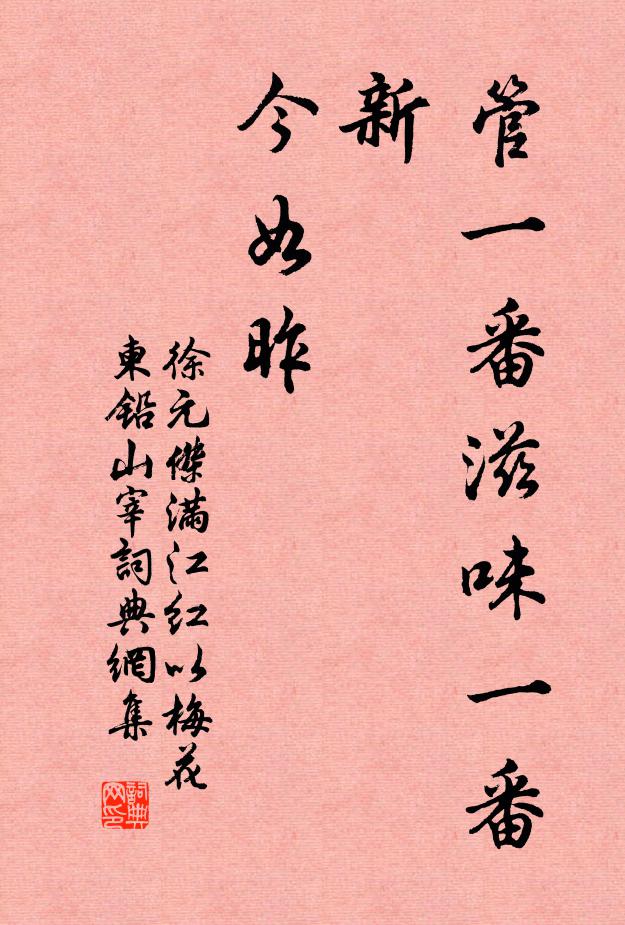 管一番滋味一番
新
今如昨
徐元傑滿江紅以梅花
東鉛山宰詞典網集
詞典网印